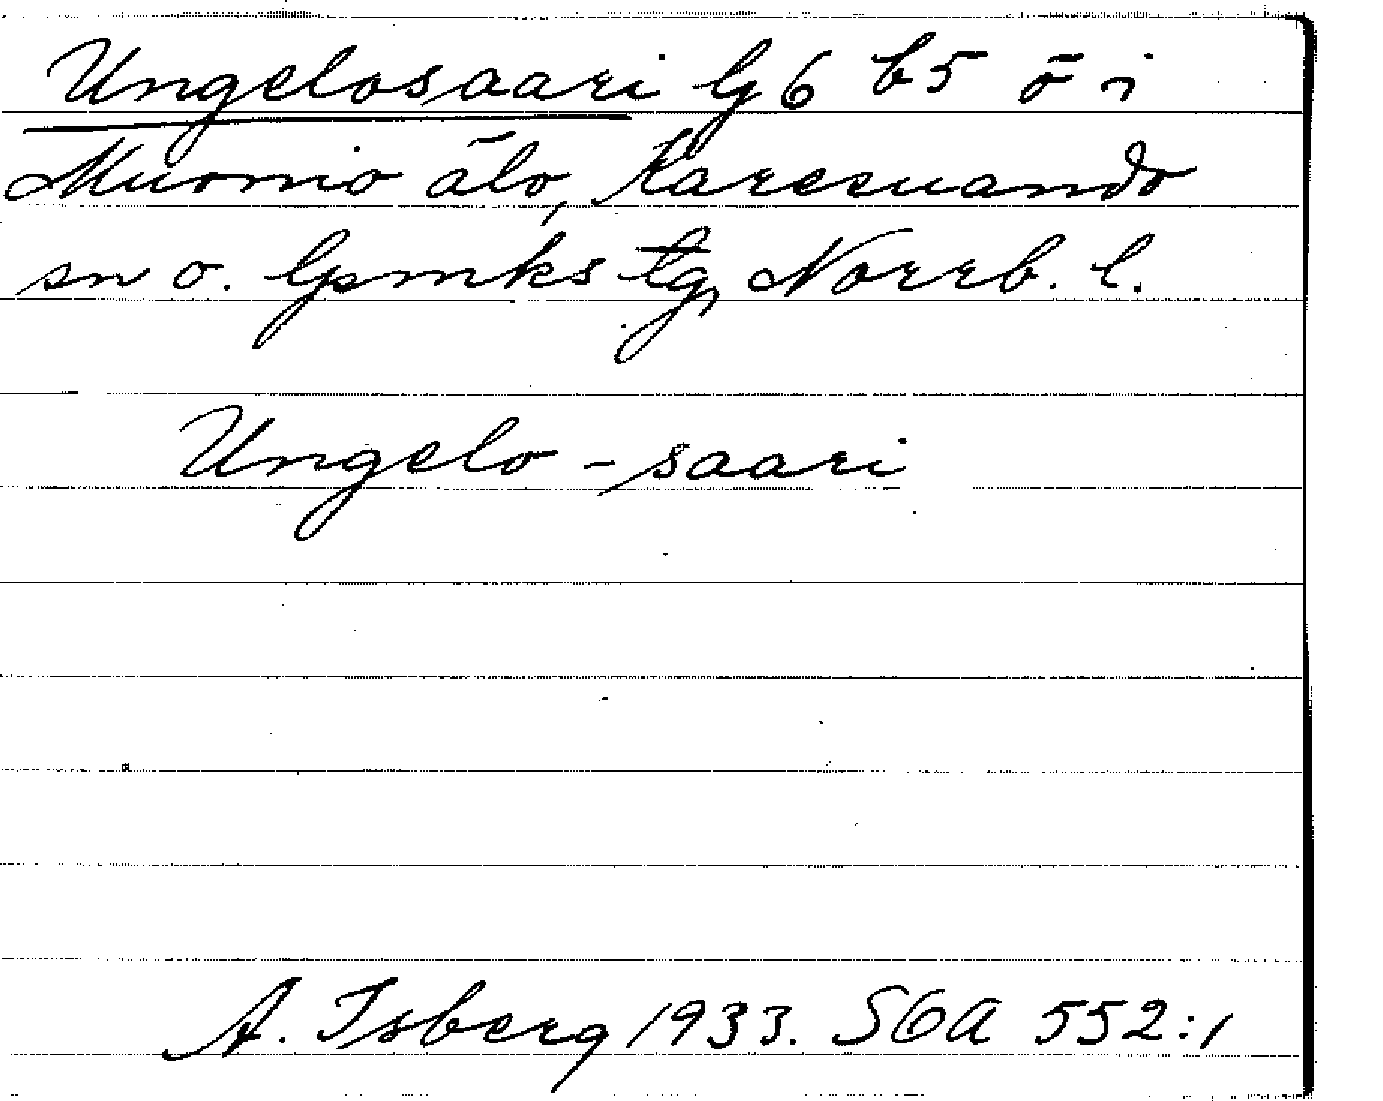 Ungelosaari lg 6 b5 ö i
Muonio älv, Karesuando
sn o. lpmks tg, Norrb. l.
Ungelo - saari
A. Isberg 1933. SOA 552:1